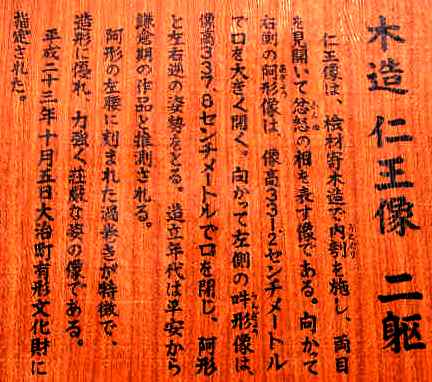 木造 仁王像 二躯
仁王像は、桧材寄木造で内刳を施し、両目
を見開いて忿怒の相を表す像である。向かって
右側の阿形像は、像高331.2センチメートル
で口を大きく開く。向かって左側の吽形像は、
像高337.8センチメートルで口を閉じ、阿形
と左右逆の姿勢をとる。造立年代は平安から
鎌倉期の作品と推測される。
阿形の左腰に刻まれた渦巻きが特徴で、
造形に優れ、力強く荘厳な姿の像である。
平成二十三年十月五日大治町有形文化財に
指定された。